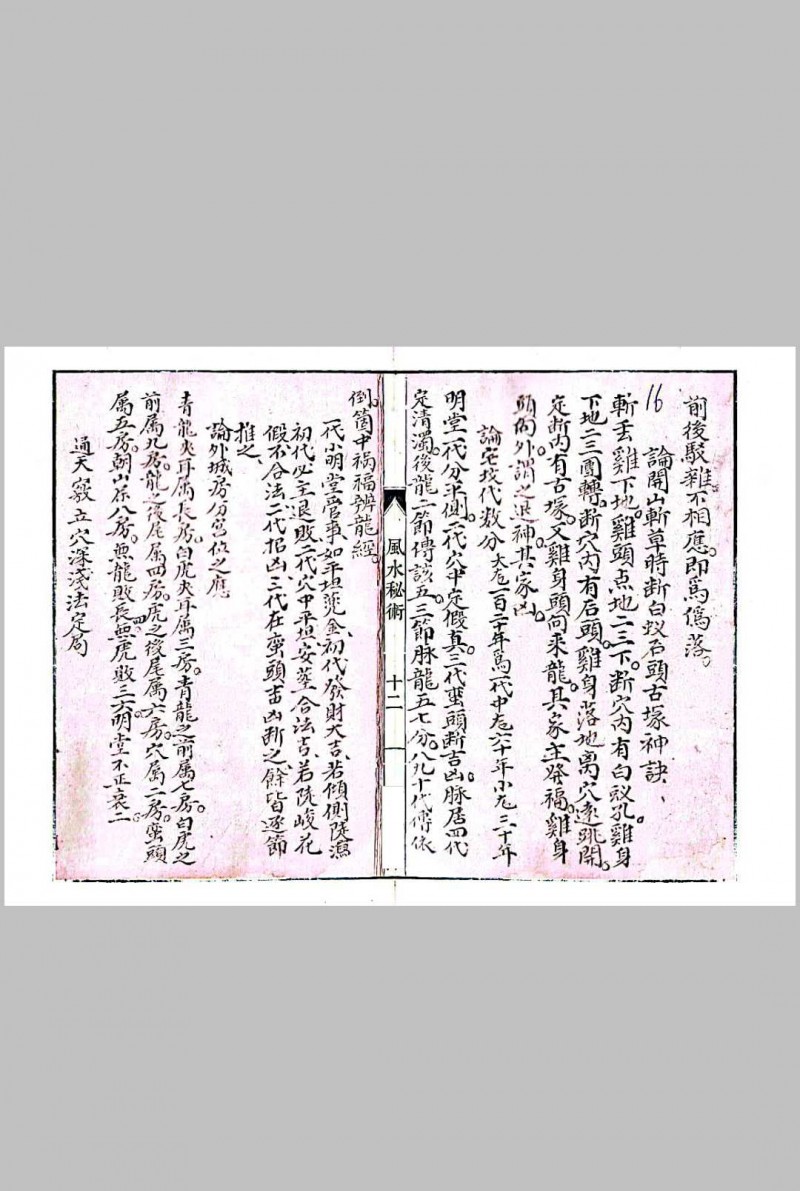 前後駁雜不相應。即爲僞落。
16
論開山斬草時断白蚁石頭古塚神訣、
斬丢雞下地。雞頭点地二三下。断穴内有白蚁孔。雞身
下地二三團轉。断穴内有石頭。雞身落地离穴遠跳開。
定断内有古塚。又雞身頭向来龍。其家主發福。雞身
頭向外。謂之退神。其家凶。
論宅坟代数分 大元一百二十年爲一代中元六十年小元三十年
明堂一代分平側。二代穴中定假真。三代蛮頭断吉凶。脉居四代
定清濁。後龍一節傳該五。三節脉龍五七分。八九十代傳依
風水秘術
十二
倒。箇中祸福辨龍經。
一代小明堂管事。如平坦兜金、初代發財大吉、若傾側陡瀉
初代必主退敗、二代穴中平坦安葬合法吉、若陡峻花
假不合法二代招凶、三代在蛮頭吉凶断之、餘皆逐節
推之、
論外城房分宮位之應
青龍夾耳属長房。白虎夾耳属三房。青龍之前属七房。白虎之
前属九房。龍之後尾属四房。虎之後尾属六房。穴属二房。蛮頭
属五房。朝山原八房。無龍敗長四。無虎敗三六。明堂不正衰二
通天竅立穴深淺法定局